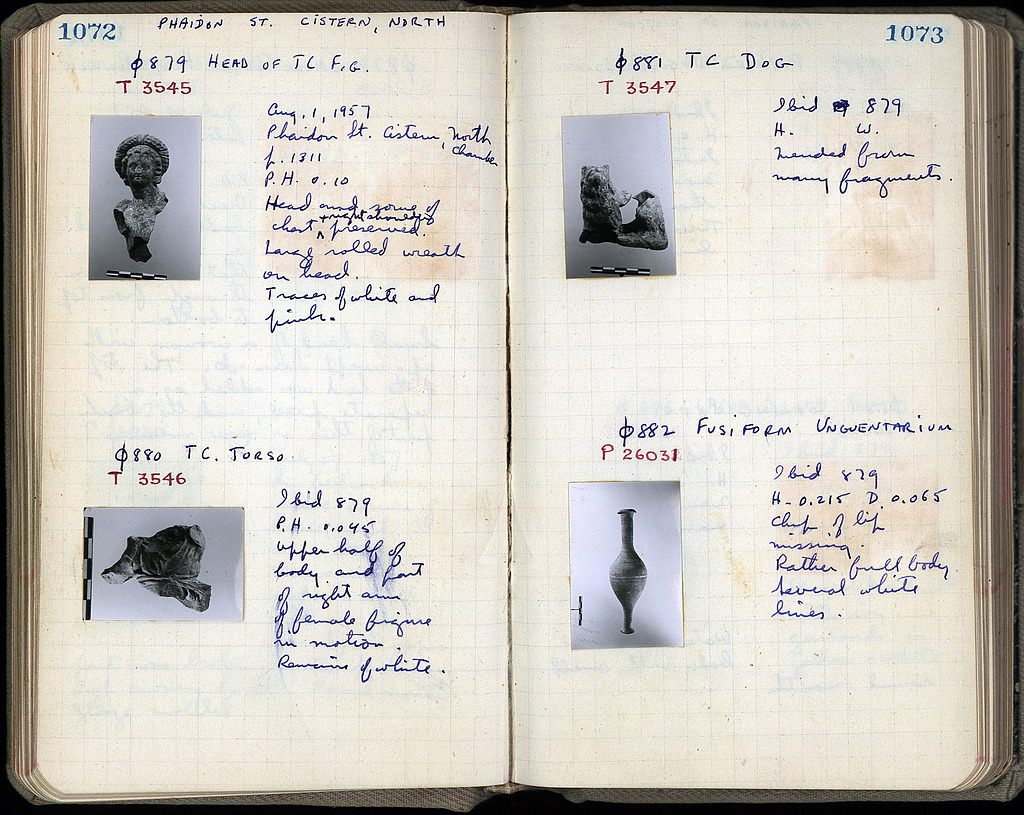 1072
PHAIDON ST. CISTERN, NORTH
φ879 HEAD OF TC FIG.
T 3545
Aug. 1, 1957
Phaidon St. Cistern, North
Chamber
p. 1311
P.H. 0.10
Head and some of
+ right shoulder
chest ^ preserved.
Large rolled wreath
on head.
Traces of white and
pink.
φ880 TC. TORSO
T 3546
Ibid 879
P.H. 0.045
Upper half of
body and part
of right arm
of female figure
in motion.
Remains of white.
1073
φ881 TC DOG
T 3547
Ibid 879
H. W.
Mended from
many fragments.
φ882 FUSIFORM UNGUENTARIUM
P 26031
Ibid 879
H. 0.215 D. 0.065
Chip of lip
missing.
Rather full body.
Several white
lines.